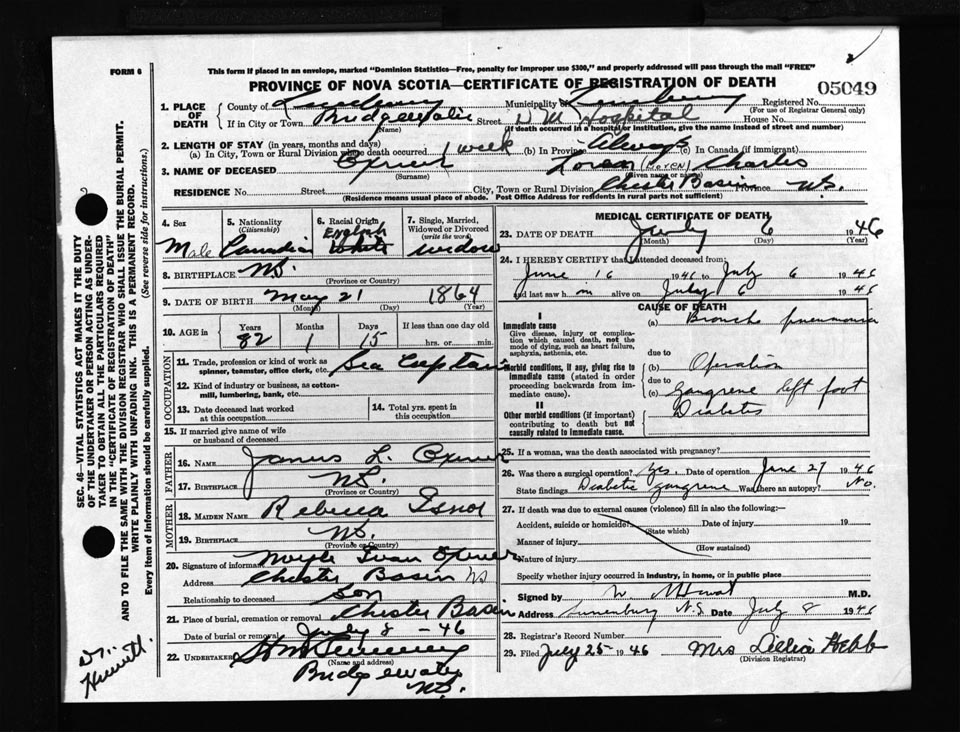 FORM 6
This form if placed in an envelope, marked "Dominion Statistics—Free, penalty for improper use $300," and properly addressed will pass through the mail "FREE"
2
PROVINCE OF NOVA SCOTIA—CERTIFICATE OF REGISTRATION OF DEATH
05049
1. PLACE OF DEATH
County of Lunenburg Municipality of Lunenburg Registered No.
(For use of Registrar General only)
If in City or Town Bridgewater Street D M Hospital House No.
(Name) (If death occurred in a hospital or institution, give the name instead of street and number)
2. LENGTH OF STAY (in years, months and days)
(a) In City, Town or Rural Division where death occurred 1 week (b) In Province Always (c) In Canada (if immigrant)
3. NAME OF DECEASED Oxner Loren (LOREN) Charles
(Surname) (Given name or names)
RESIDENCE No. Street City, Town or Rural Division Chester Basin Province N.S.
(Residence means usual place of abode. Post Office Address for residents in rural parts not sufficient)
4. Sex Male
5. Nationality (Citizenship) Canadian
6. Racial Origin English White
7. Single, Married, Widowed or Divorced (write the word) widow
8. BIRTHPLACE N.S.
(Province or Country)
9. DATE OF BIRTH May 21 1864
(Month) (Day) (Year)
10. AGE in Years Months Days If less than one day old
82 1 15 hrs. or min.
OCCUPATION
11. Trade, profession or kind of work as spinner, teamster, office clerk, etc. Sea Captain
12. Kind of industry or business, as cotton-mill, lumbering, bank, etc.
13. Date deceased last worked at this occupation
14. Total yrs. spent in this occupation
15. If married give name of wife or husband of deceased
FATHER
16. NAME James L. Oxner
17. BIRTHPLACE N.S.
(Province or Country)
MOTHER
18. MAIDEN NAME Rebecca
19. BIRTHPLACE N.S.
(Province or Country)
20. Signature of informant Ivan Oxner
Address Chester Basin NS
Relationship to deceased Son
21. Place of burial, cremation or removal Chester Basin
Date of burial or removal July 8 - 46
22. UNDERTAKER
(Name and address)
Bridgewater
N.S.
MEDICAL CERTIFICATE OF DEATH
23. DATE OF DEATH July 6 1946
(Month) (Day) (Year)
24. I HEREBY CERTIFY that I attended deceased from:
June 16 1946 to July 6 1946
and last saw him alive on July 6 1946
CAUSE OF DEATH
I
Immediate cause
Give disease, injury or complication which caused death, not the mode of dying, such as heart failure, asphyxia, asthenia, etc.
(a) Broncho pneumonia
due to
Morbid conditions, if any, giving rise to immediate cause (stated in order proceeding backwards from immediate cause).
(b) Operation
due to
(c) Gangrene left foot
II
Other morbid conditions (if important) contributing to death but not causally related to immediate cause.
Diabetes
25. If a woman, was the death associated with pregnancy?
26. Was there a surgical operation? Yes. Date of operation June 27 1946
State findings Diabetic gangrene Was there an autopsy? No.
27. If death was due to external causes (violence) fill in also the following:—
Accident, suicide or homicide? Date of injury 19
(State which)
Manner of injury
(How sustained)
Nature of injury
Specify whether injury occurred in industry, in home, or in public place
Signed by M.D.
Address Lunenburg N.S. Date July 8 1946
28. Registrar's Record Number
29. Filed July 25 1946 Mrs Lillia Hebb
(Division Registrar)
SEC. 46—VITAL STATISTICS ACT MAKES IT THE DUTY
OF THE UNDERTAKER OR PERSON ACTING AS UNDER-
TAKER TO OBTAIN ALL THE PARTICULARS REQUIRED
IN THE "CERTIFICATE OF REGISTRATION OF DEATH"
AND TO FILE THE SAME WITH THE DIVISION REGISTRAR WHO SHALL ISSUE THE BURIAL PERMIT.
WRITE PLAINLY WITH UNFADING INK. THIS IS A PERMANENT RECORD.
Every item of information should be carefully supplied. (See reverse side for instructions.)
Dr.
Hewitt.